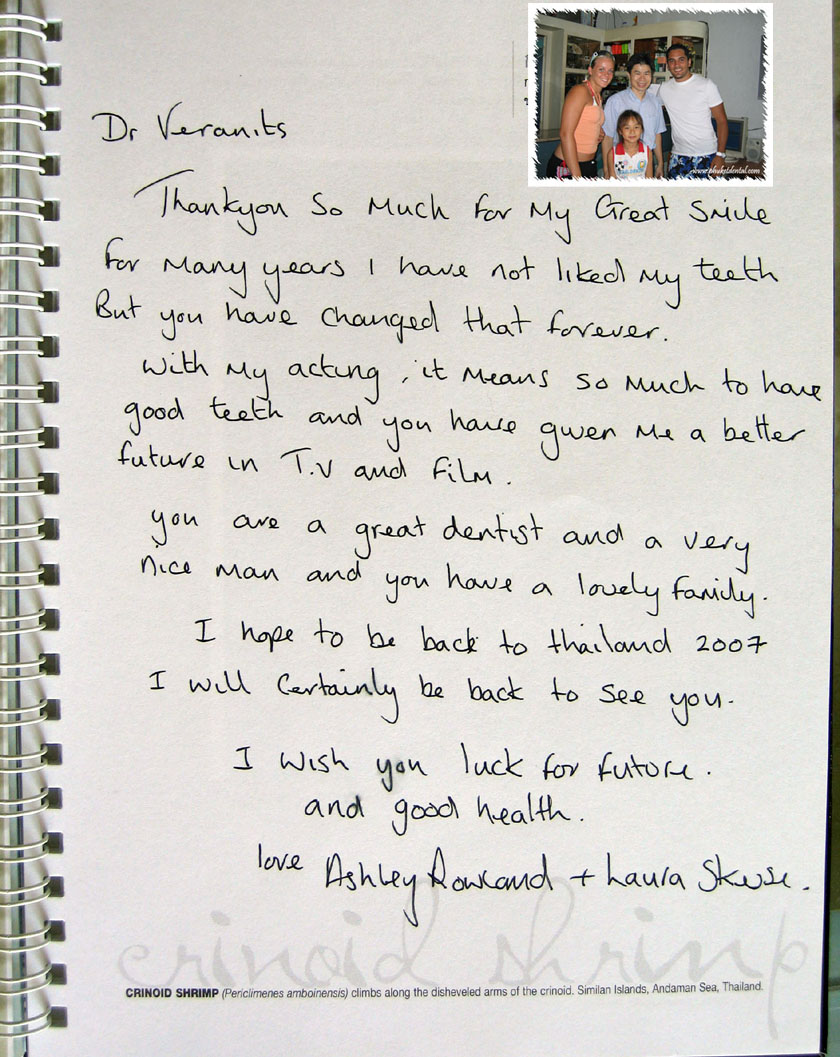 www.phuketdental.com
Dr Veranits
Thankyou So Much for My Great Smile
for Many years I have not liked My teeth
But you have changed that forever.
with My acting, it Means so Much to have
good teeth and you have given Me a better
future in T.V and film.
you are a great dentist and a very
nice man and you have a lovely family.
I hope to be back to thailand 2007
I will Certainly be back to see you.
I wish you luck for future.
and good health.
love Ashley Rowland + Laura Skuse.
crinoid shrimp
CRINOID SHRIMP (Periclimenes amboinensis) climbs along the disheveled arms of the crinoid. Similan Islands, Andaman Sea, Thailand.